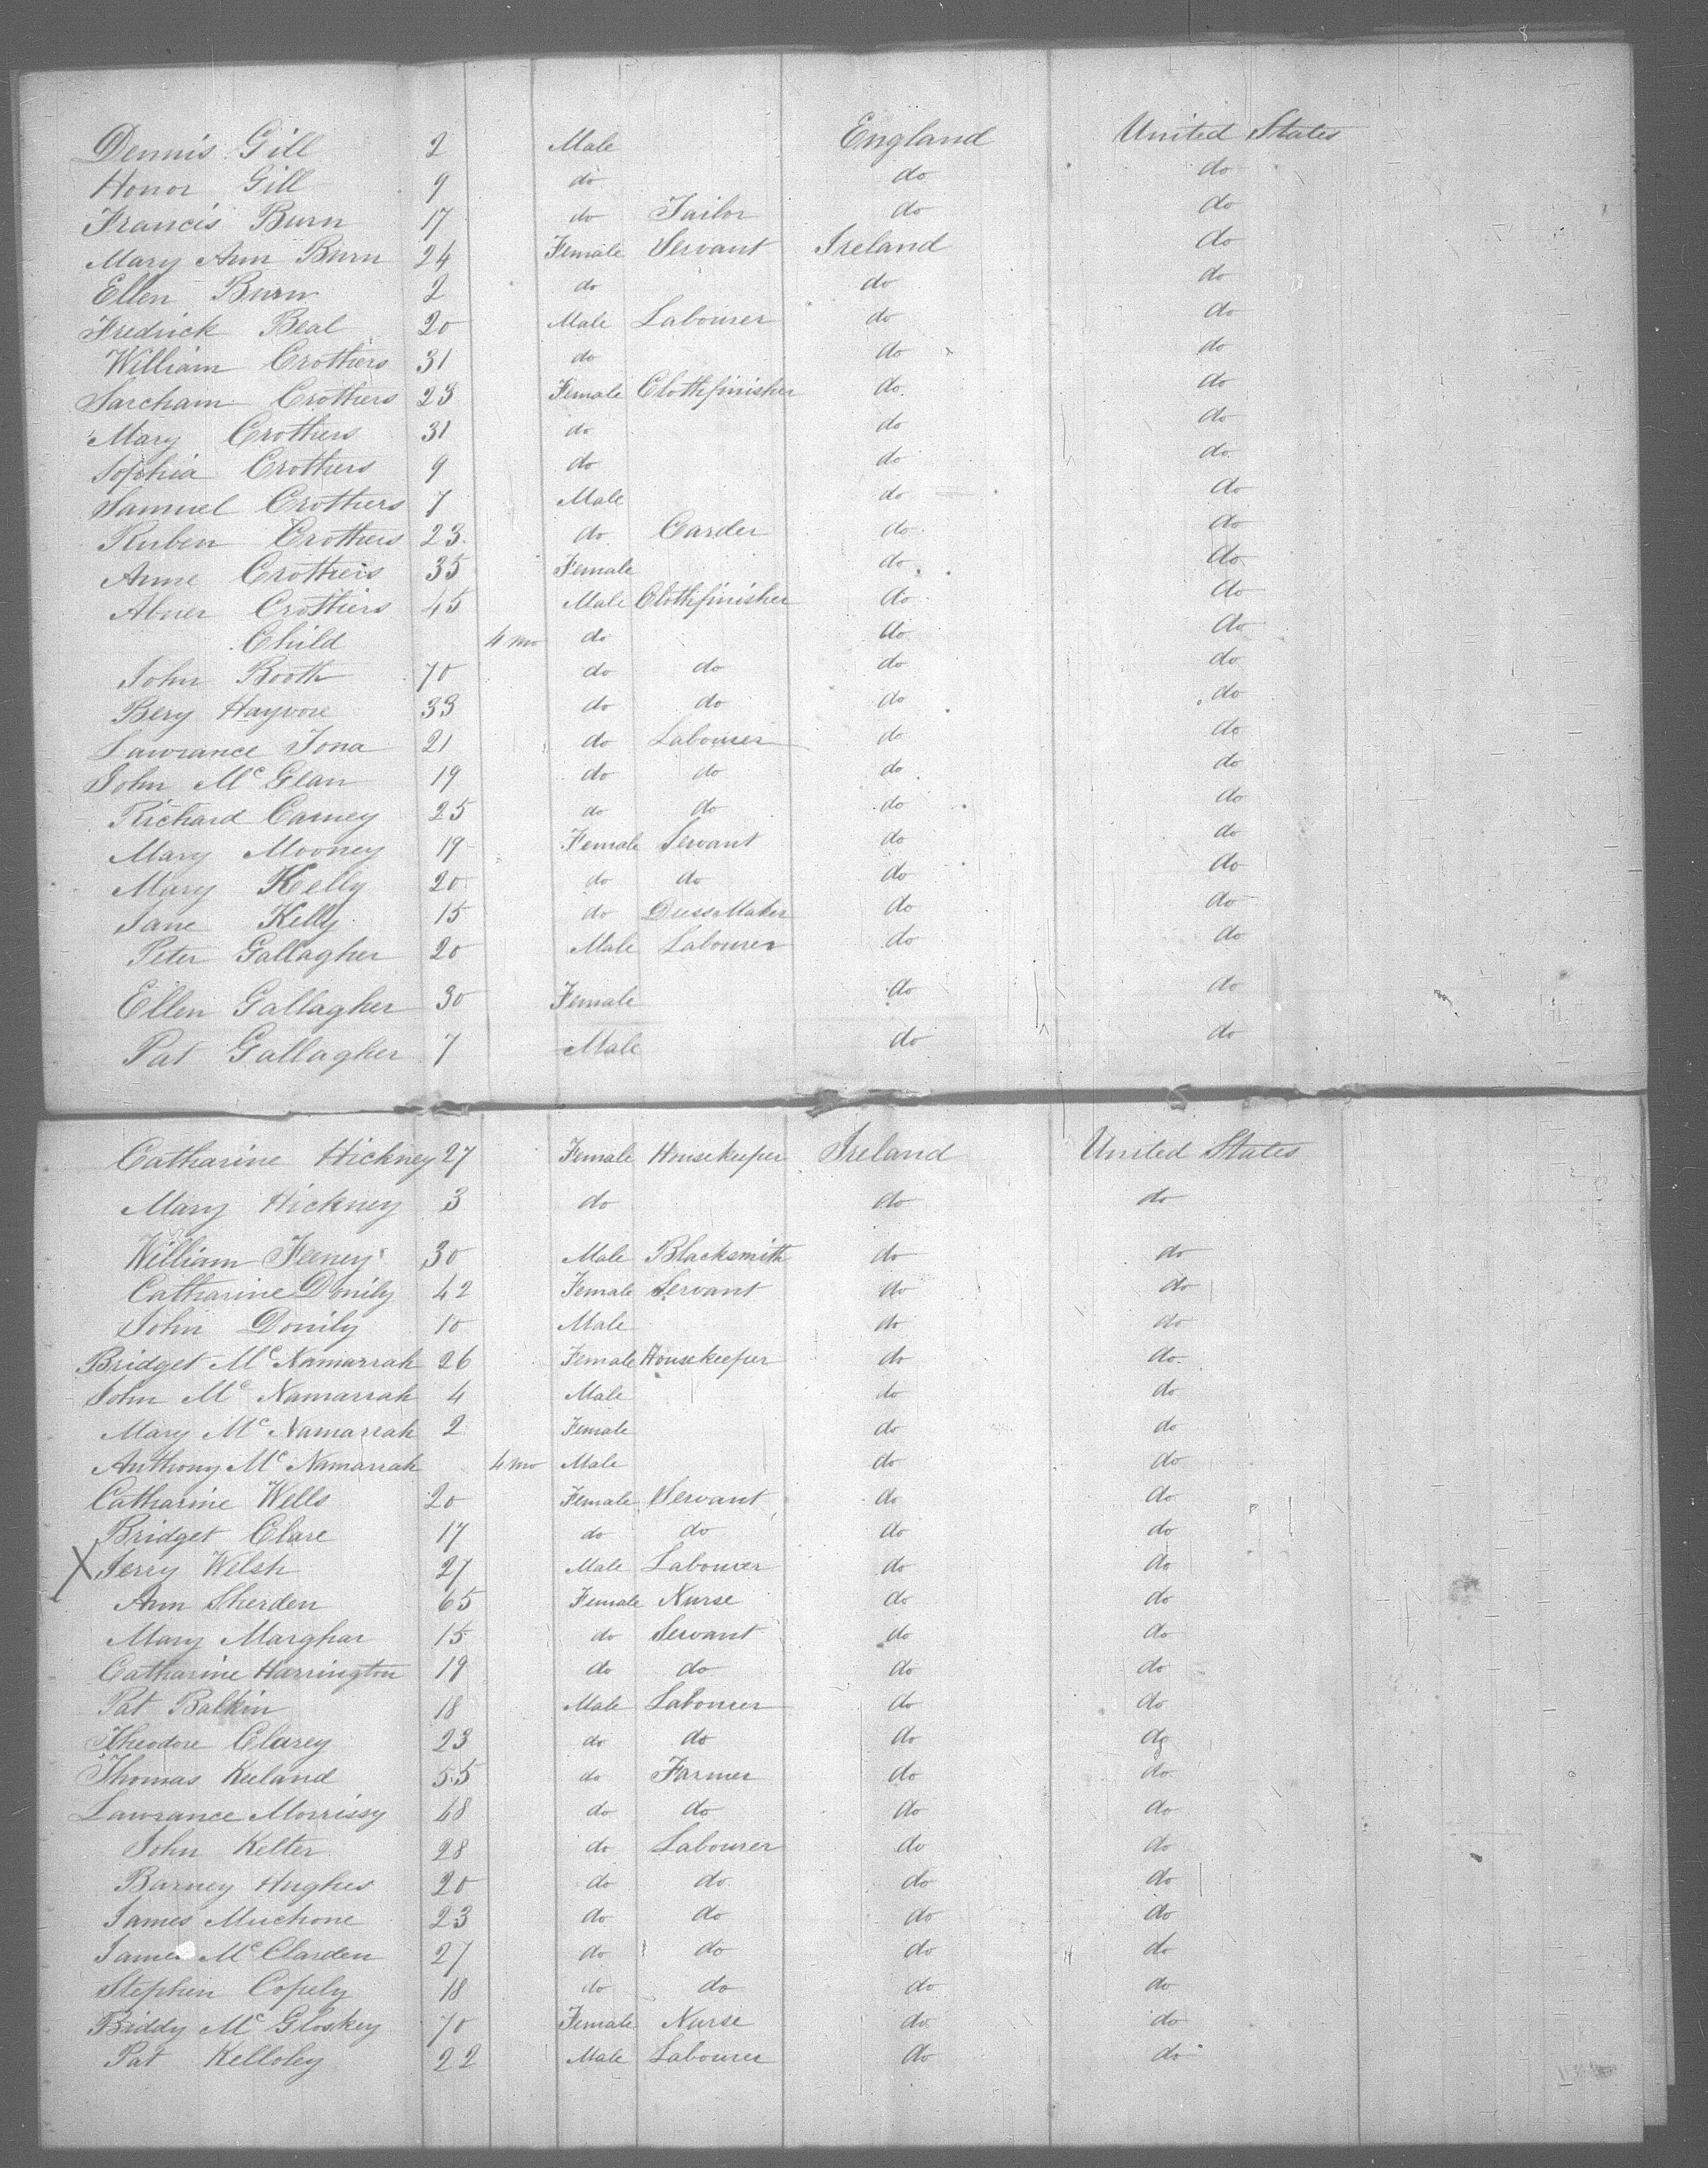 Dennis Gill 2 Male England United States
Honor Gill 9 do do do
Francis Burn 17 do Tailor do do
Mary Ann Burn 24 Female Servant Ireland do
Ellen Burn 2 do do do
Fredrick Beal 20 Male Labourer do do
William Crothers 31 do do do
Sarcham Crothers 23 Female Clothfinisher do do
Mary Crothers 31 do do do
Sophia Crothers 9 do do do
Samuel Crothers 7 Male do do
Ruben Crothers 23 do Carder do do
Anne Crothers 35 Female do do
Abner Crothers 45 Male Clothfinisher do do
Child 4 mo do do do
John Booth 70 do do do do
Bery Hayvore 33 do do do do
Lawrance Iona 21 do Labourer do do
John Mc Glan 19 do do do do
Richard Carney 25 do do do do
Mary Mooney 19 Female Servant do do
Mary Kelly 20 do do do do
Jane Kelly 15 do Dress Maker do do
Peter Gallagher 20 Male Labourer do do
Ellen Gallagher 30 Female do do
Pat Gallagher 7 Male do do
Catharine Hickney 27 Female Housekeeper Ireland United States
Mary Hickney 3 do do do
William Feeney 30 Male Blacksmith do do
Catharine Donily 42 Female Servant do do
John Donily 10 Male do do
Bridget Mc Namarrah 26 Female Housekeeper do do
John Mc Namarrah 4 Male do do
Mary Mc Namarrah 2 Female do do
Anthony Mc Namarrah 4 mo Male do do
Catharine Wells 20 Female Servant do do
Bridget Clare 17 do do do do
X Jerry Welsh 27 Male Labourer do do
Ann Sherden 65 Female Nurse do do
Mary Marghar 15 do Servant do do
Catharine Harrington 19 do do do do
Pat Balkin 18 Male Labourer do do
Theodore Clarey 23 do do do do
Thomas Keeland 55 do Farmer do do
Lawrance Morrissy 48 do do do do
John Kelter 28 do Labourer do do
Barney Hughes 20 do do do do
James Muchone 23 do do do do
James Mc Clarden 27 do do do do
Stephen Copely 18 do do do do
Biddy Mc Gloskey 70 Female Nurse do do
Pat Kelloley 22 Male Labourer do do